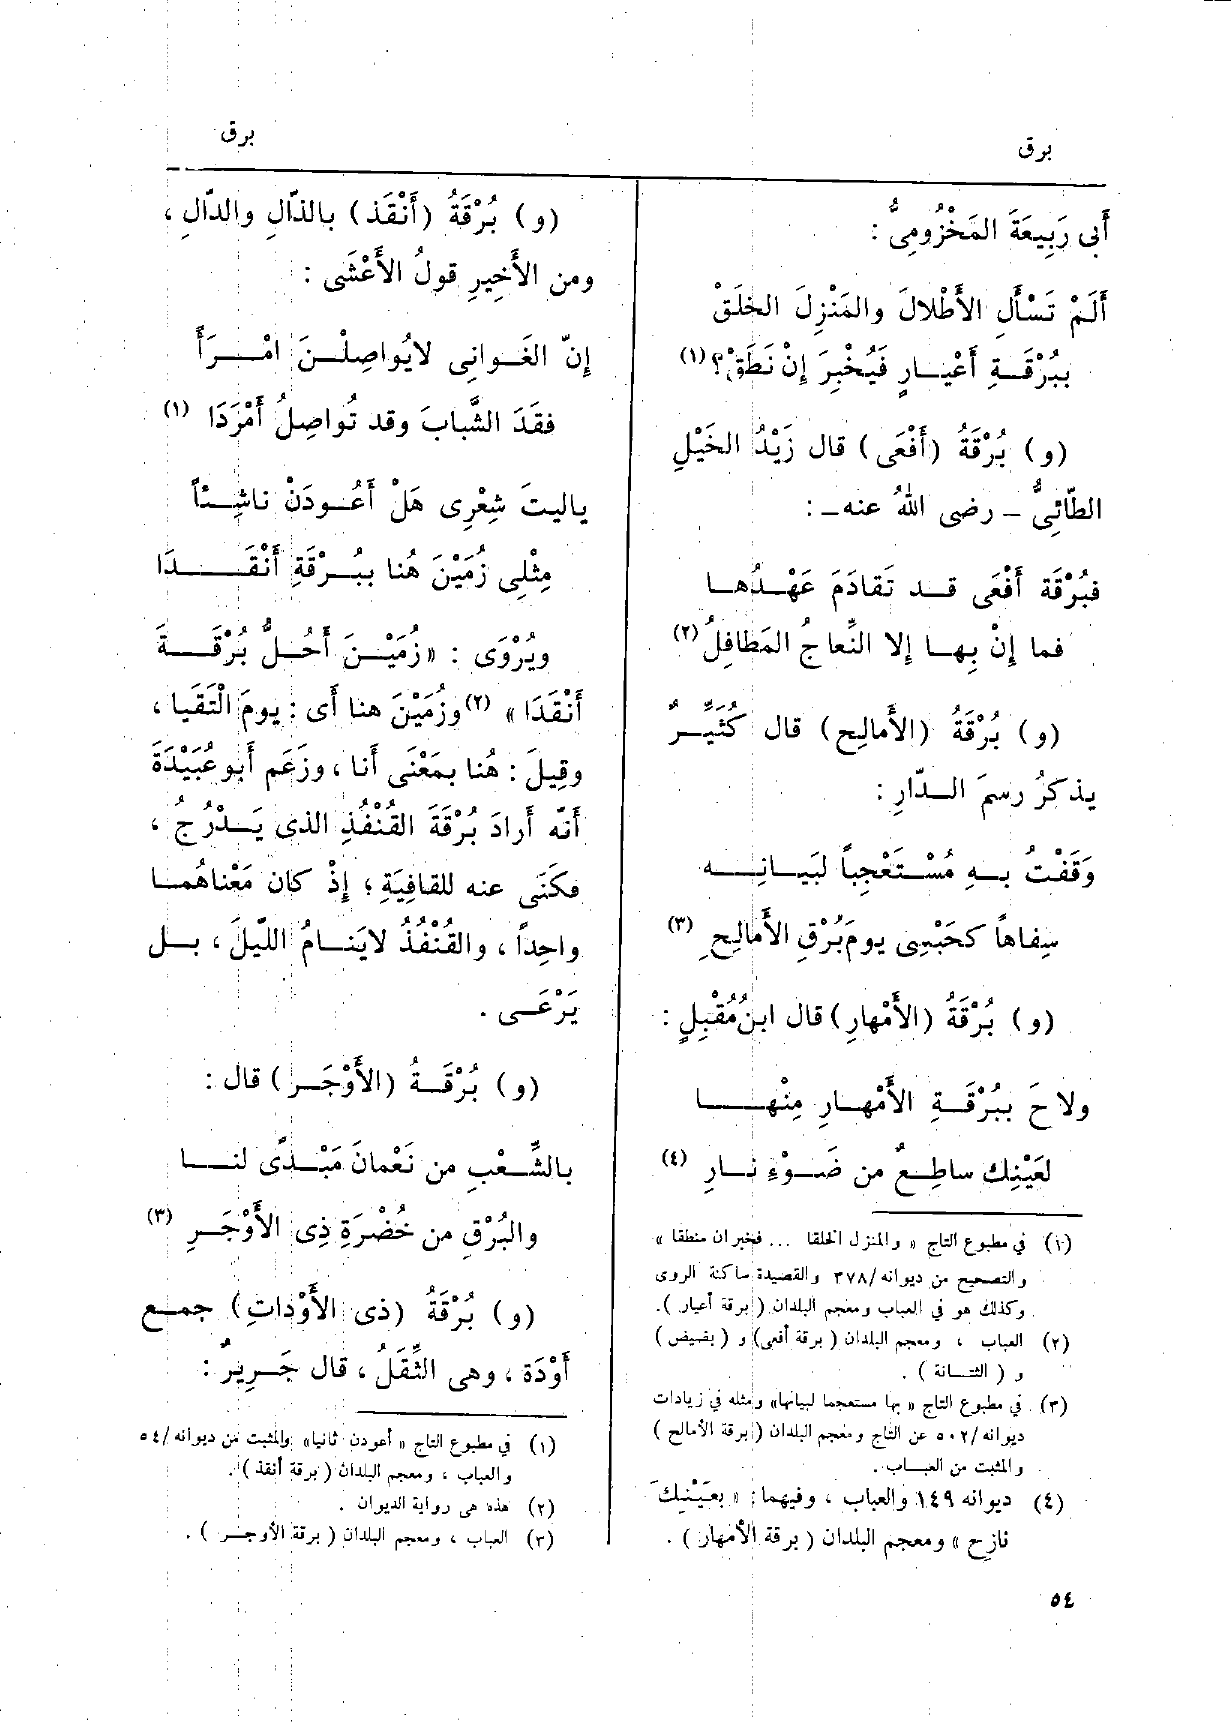 برق
أَبى رَبِيعَةَ المَخْزُومِىُّ :
أَلَمْ تَسْأَلِ الأَطْلالَ والمَنْزِلَ الخَلَقْ
بِبُرْقَـةِ أَعْيـارٍ فَيُخْبِرَ إِنْ نَطَقْ؟ (١)
(و) بُرْقَةُ (أَفْعَى) قال زَيْدُ الخَيْلِ
الطّائِىُّ - رضى اللهُ عنه - :
فبُرْقَة أَفْعَى قـد تَقادَمَ عَهْـدُهـا
فما إِنْ بِهـا إِلا النِّعاجُ المَطافِلُ (٢)
(و) بُرْقَةُ (الأَمالِحِ) قال كُثَيِّـرٌ
يذكرُ رسمَ الـدّارِ :
وَقَفْتُ بـهِ مُسْتَعْجِباً لبَيانِـهِ
سِفاهاً كحَبْسِى يوم بُرْقِ الأَمالِحِ (٣)
(و) بُرْقَةُ (الأَمْهارِ) قال ابنُ مُقْبِلٍ :
ولاحَ بِبُرْقَـةِ الأَمْهـارِ مِنْهـا
لعَيْنِك ساطِعٌ من ضَـوْءِ نـارِ (٤)
(١) في مطبوع التاج « والمنزل الخلقا ... فخبران منطقا »
والتصحيح من ديوانه/٣٧٨ والقصيدة ساكنة الروى
وكذلك هو في العباب ومعجم البلدان (برقة أعيار).
(٢) العباب ، ومعجم البلدان (برقة أفعى) و (بضيض)
و ( الثتـانة ) .
(٣) في مطبوع التاج « بها مستعجما لبيانها» ومثله في زيادات
ديوانه/٥٠٢ عن التاج ومعجم البلدان (برقة الأمالح)
والمثبت من العبـاب .
(٤) ديوانه ١٤٩ والعباب ، وفيهما : « بعَيْنِكَ
نازِح » ومعجم البلدان ( برقة الأمهار ) .
٥٤
برق
(و) بُرْقَةُ (أَنْقَذ) بالذّالِ والدّالِ ،
ومن الأَخِيرِ قولُ الأَعْشَى :
إِنّ الغَـوانِى لايُواصِلْـنَ امْـرَأً
فقَدَ الشَّبابَ وقد تُواصِلُ أَمْرَدَا (١)
ياليتَ شِعْرِى هَلْ أَعُـودَنْ ناشِـئاً
مِثْلِى زُمَيْنَ هُنا ببُـرْقَةِ أَنْقَـدَا
ويُرْوَى : « زُمَيْـنَ أَحُـلُّ بُرْقَـةَ
أَنْقَدَا » (٢) وزُمَيْنَ هنا أَى : يومَ الْتَقَيا ،
وقِيلَ : هُنا بمَعْنَى أَنا ، وزَعَم أَبو عُبَيْدَةَ
أَنّه أَرادَ بُرْقَةَ القُنْفُذِ الذى يَـدْرُجُ ،
فكَنَى عنه للقافِيَةِ ؛ إِذْ كان مَعْناهُمـا
واحِداً ، والقُنْفُذُ لايَنـامُ اللّيلَ ، بـل
يَرْعَـى .
(و) بُرْقَـةُ (الأَوْجَـرِ) قال :
بالشِّـعْبِ من نَعْمانَ مَبْـدًى لنـا
والبُرْقِ من خُضْرَةِ ذِى الأَوْجَـرِ (٣)
(و) بُرْقَةُ (ذى الأَوْداتِ) جمـع
أَوْدَة ، وهى الثِّقَلُ ، قال جَـرِيرٌ :
(١) في مطبوع التاج « أعودن ثانيا» والمثبت من ديوانه /٥٤
والعباب ، ومعجم البلدان (برقة أنقذ) .
(٢) هذه هى رواية الديوان .
(٣) العباب ، ومعجم البلدان ( برقة الأوجـر ) .